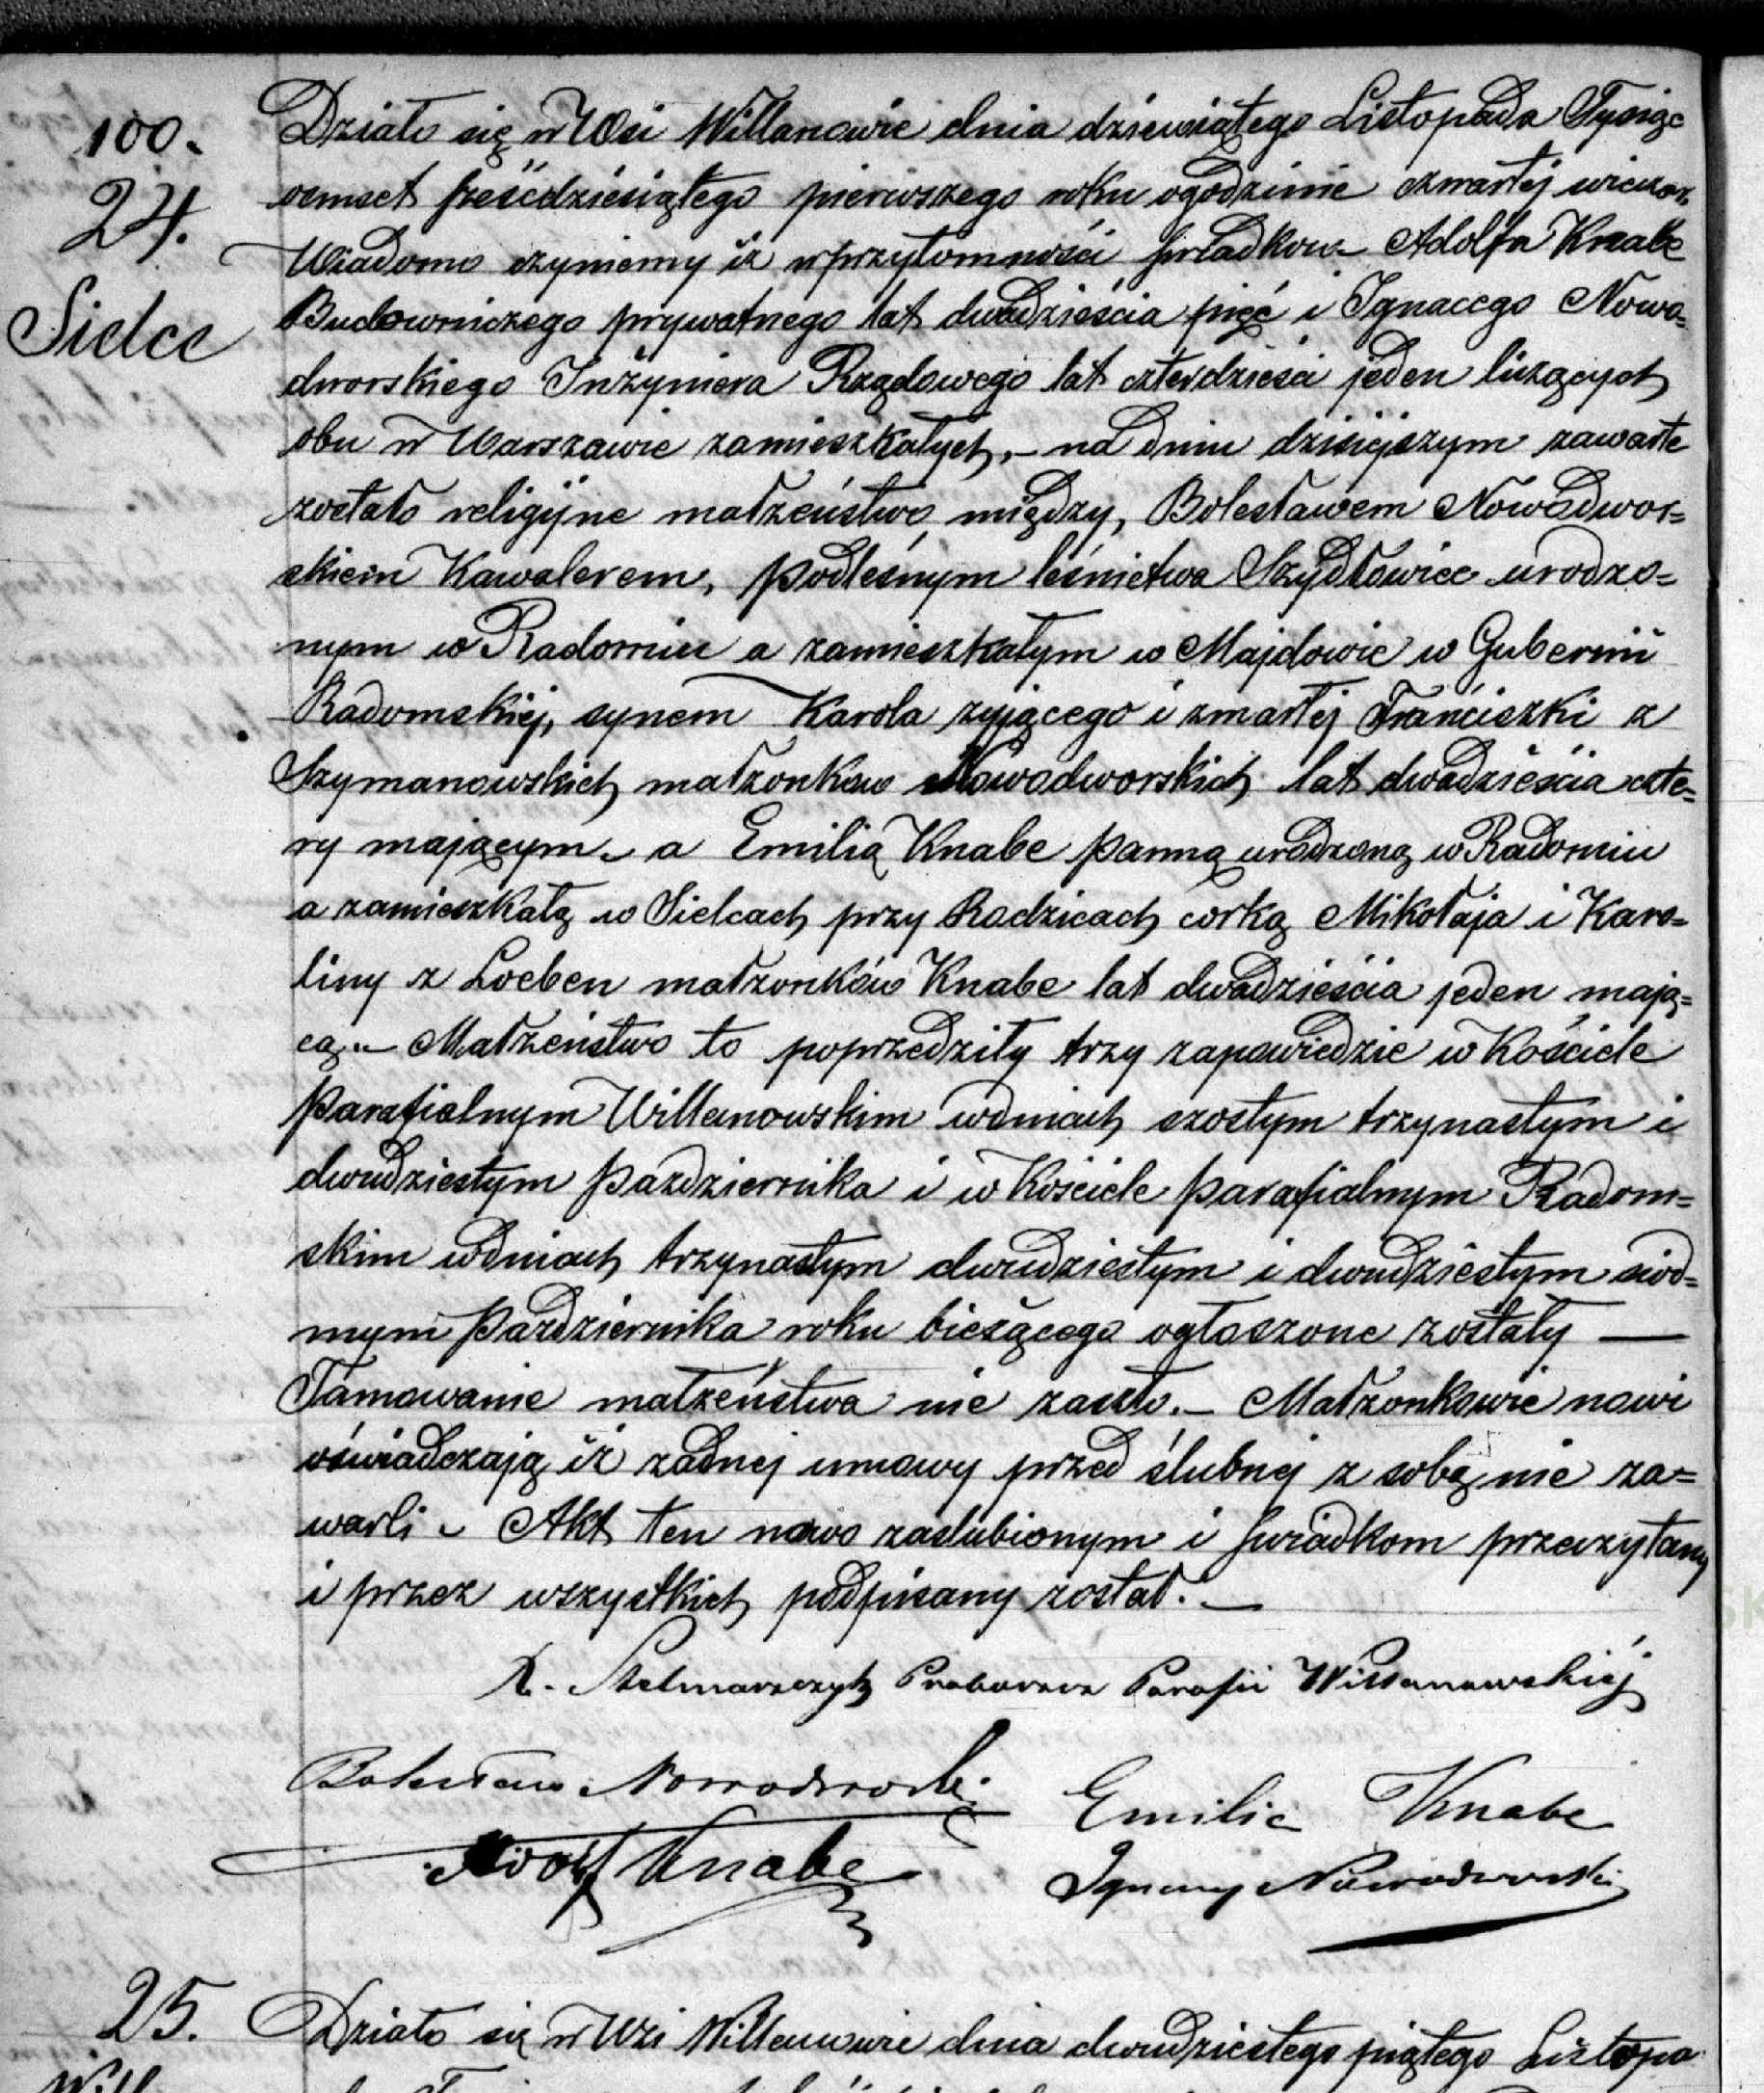 100.
24.
Sielce
Działo się w Wsi Willanowie dnia dziewiątego Listopada Tysiąc
osmset sześćdziesiątego pierwszego roku ogodzinie czwartej wieczor.
Wiadomo czyniemy iż wprzytomności swiadkow Adolfa Knabe
Budowniczego prywatnego lat dwadzieścia pięć i Ignacego Nowo=
dworskiego Inżyniera Rządowego lat czterdzieści jeden liczących
obu w Warszawie zamieszkałych, – na dniu dzisiejszym zawarte
zostało religijne małżeństwo między, Bolesławem Nowodwor=
skiem Kawalerem, podleśnym leśnictwa Szydłowiec urodzo=
nym w Radomiu a zamieszkałym w Majdowie w Gubernii
Radomskiej, synem Karola zyjącego i zmarłej Franciszki z
Szymanowskich małzonkow Nowodworskich lat dwadzieścia czte=
ry mającym – a Emilią Knabe panną urodzoną w Radomiu
a zamieszkałą w Sielcach przy Rodzicach corką Mikołaja i Karo=
liny z Loeben małzonków Knabe lat dwadzieścia jeden mają=
cą. – Małżeństwo to poprzedziły trzy zapowiedzie w Kościele
parafialnym Willanowskim wdniach szostym trzynastym i
dwudziestym pazdziernika i w Kościele parafialnym Radom=
skim wdniach trzynastym dwudziestym i dwudziestym siod=
mym pazdziernika roku bieżącego ogłoszone zostały —
Tamowanie małżeństwa nie zaszło. – Małżonkowie nowi
oświadczają iż zadnej umowy przed ślubnej z sobą nie za=
warli – Akt ten nowo zaslubionym i swiadkom przeczytany
i przez wszystkich podpisany został. —
X. Stelmaszczyk Proboszcz Parafii Willanowskiéj
Bolesław Nowodworski Emilia Knabe
Adolf Knabe Ignacy Nowodworski
25. Działo się w Wsi Willanowie dnia dwudziestego piątego Listopa